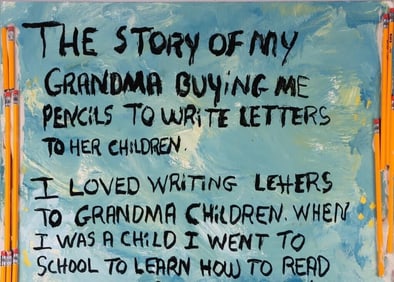 THE STORY OF MY
GRANDMA BUYING ME
PENCILS TO WRITE LETTERS
TO HER CHILDREN.
I LOVED WRITING LETTERS
TO GRANDMA CHILDREN. WHEN
I WAS A CHILD I WENT TO
SCHOOL TO LEARN HOW TO READ